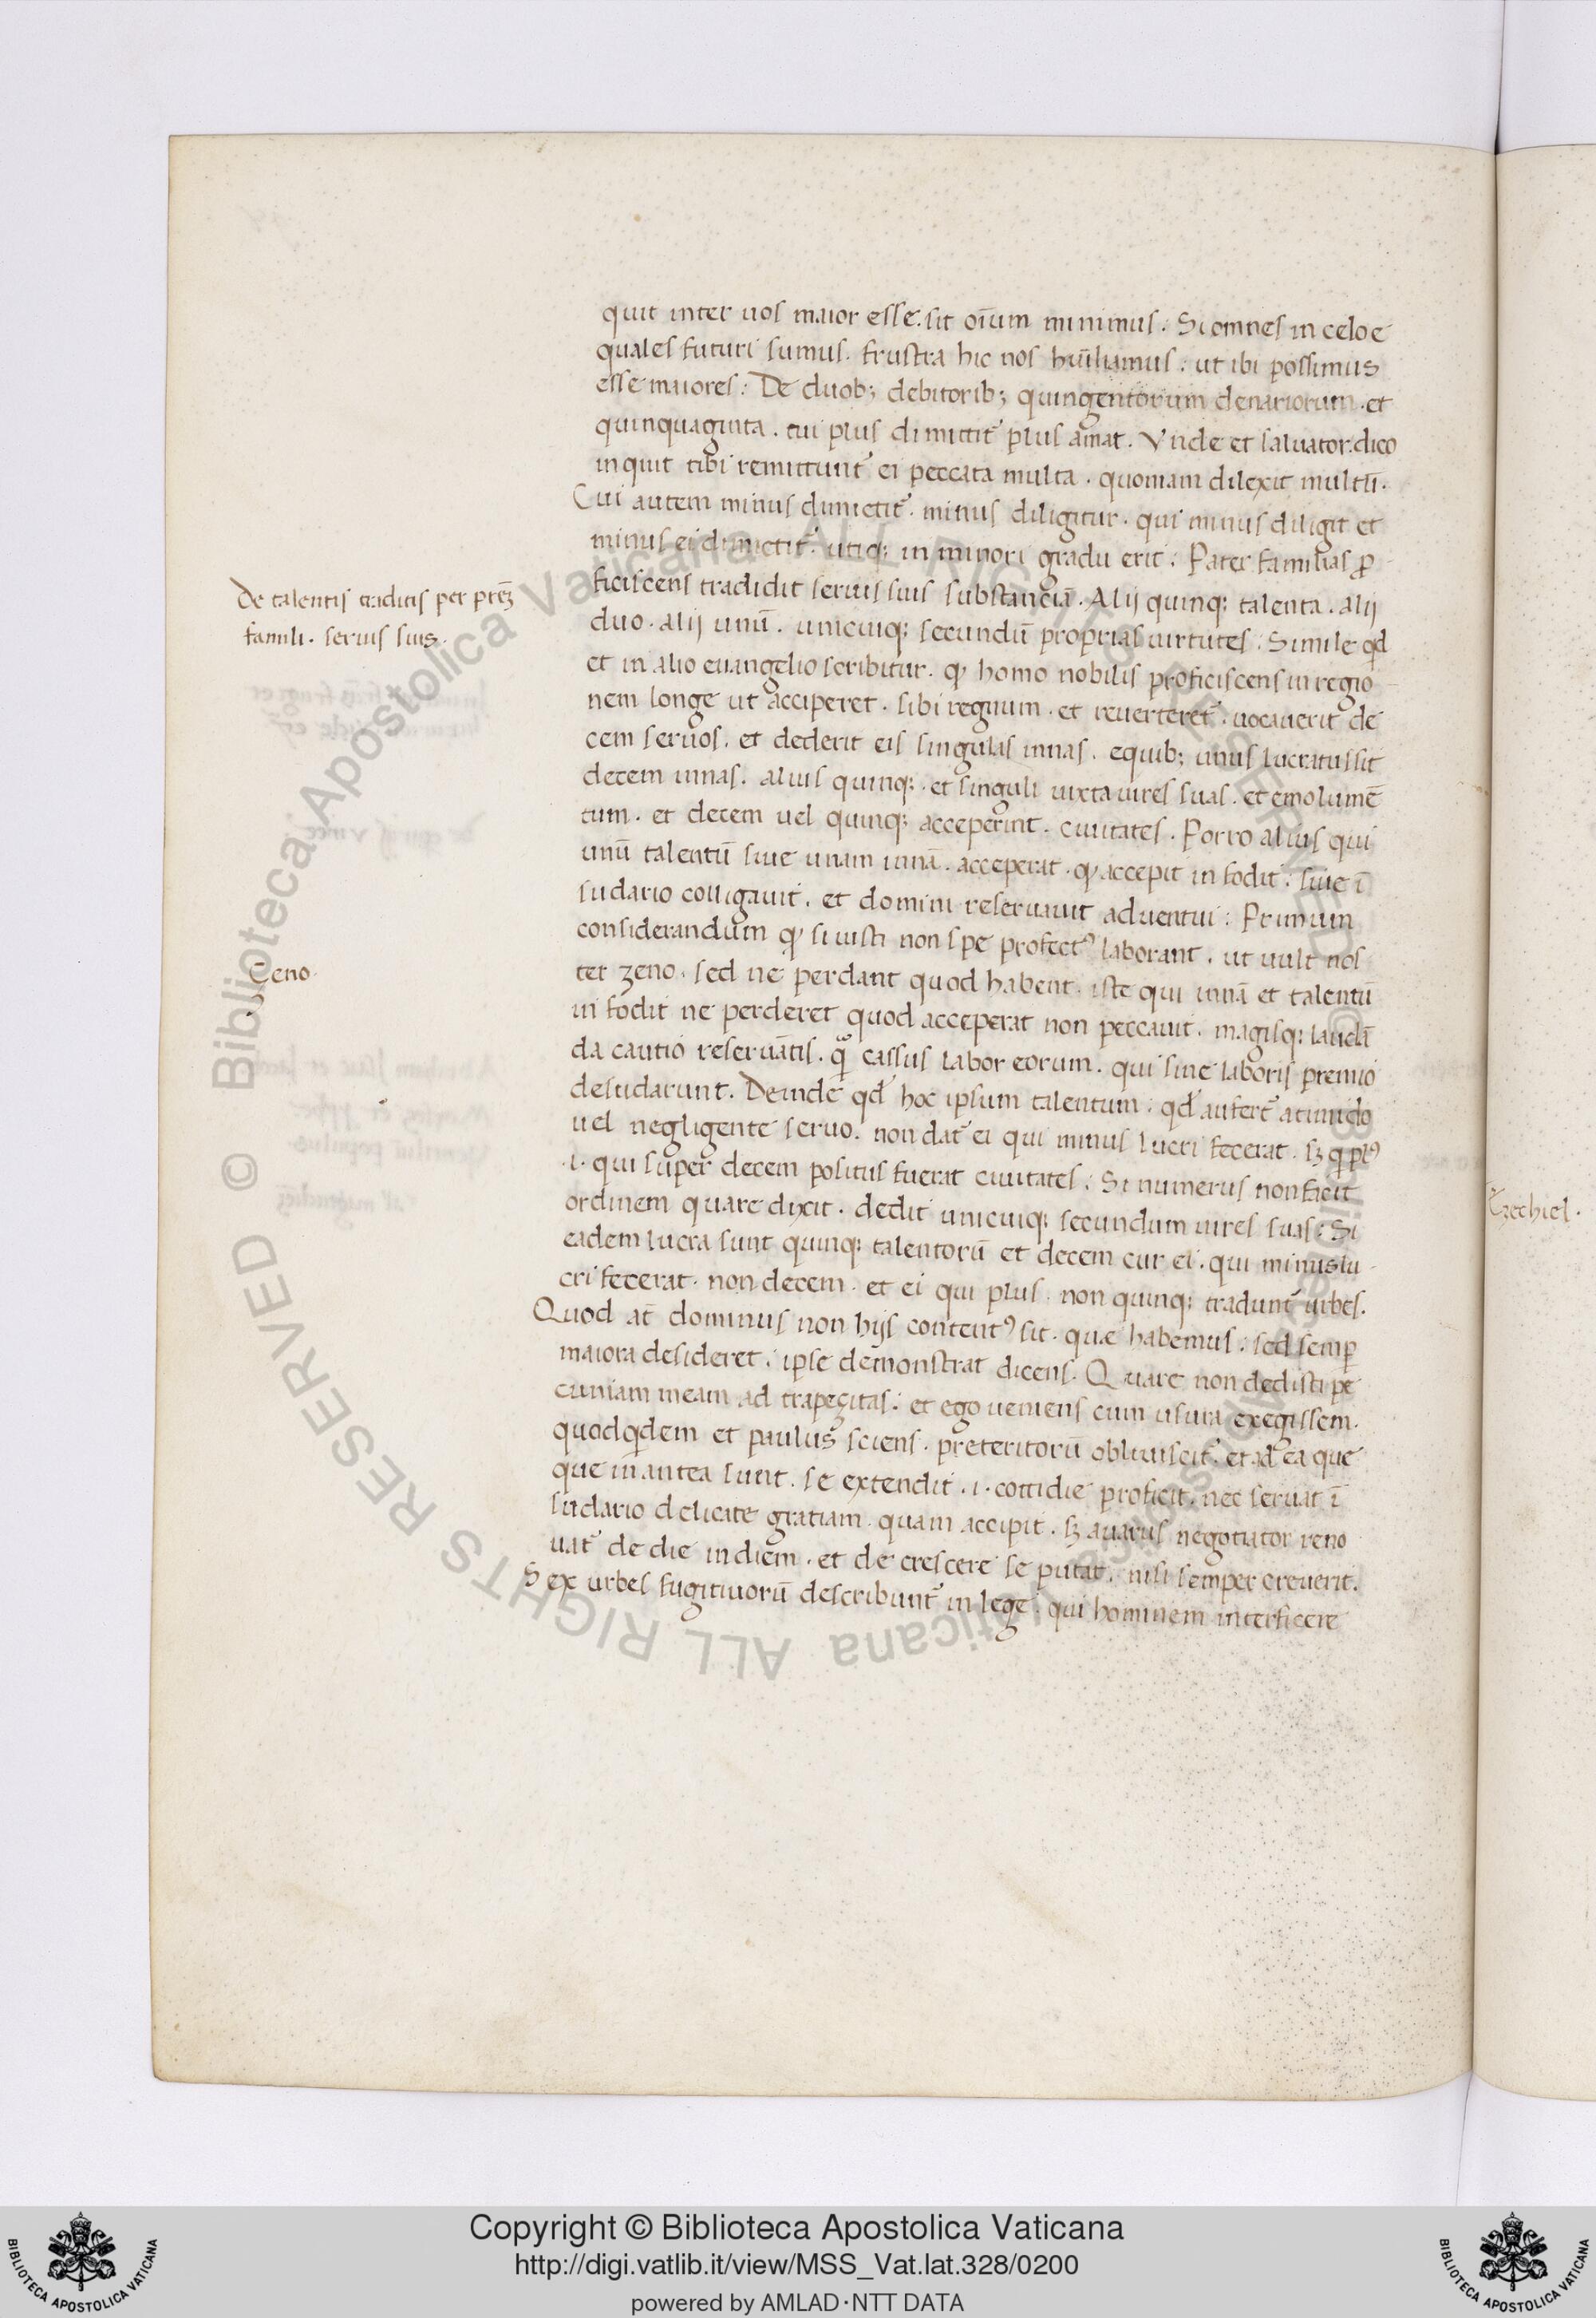 quit inter uos maior esse. sit oīum minimus. Si omnes in celo e
quales futuri sumus. frustra hic nos hūiliamus. ut ibi possimus
esse maiores. De duob; debitorib; quingentorum denariorum. et
quinquaginta. cui plus dimittit᷑ plus amat. Vnde et saluator. dico
inquit tibi remittunt᷑ ei peccata multa. quoniam dilexit multū.
Cui autem minus dimictit᷑. minus diligitur. qui minus diligit et
minus ei dimictit᷑. utiq; in minori gradu erit. Pater familias ꝓ
ficiscens tradidit seruis suis substanciā. Alij quinq; talenta. alij
duo. alij unū. unicuiq; secundū proprias uirtutes. Simile qd
et in alio euangelio scribitur. ꝙ homo nobilis proficiscens in regio
nem longe ut acciperet. sibi regnum. et reuerteret᷑. uocauerit de
cem seruos. et dederit eis singulas mnas. equib; unus lucratus sit
decem mnas. alius quinq;. et singuli iuxta uires suas. et emolumē
tum. et decem uel quinq; acceperint. ciuitates. Porro alius qui
unū talentū siue unam mnā. acceperat. ꝙ accepit in fodit. siue ī
sudario colligauit. et domini reseruauit aduentui. Primum
considerandum ꝙ si iusti non spe profectꝰ laborant. ut uult nos
ter zeno. sed ne perdant quod habent. iste qui mnā et talentū
in fodit ne perderet quod acceperat non peccauit. magisq; laudā
da cautio reseruātis. qᷓ cassus labor eorum. qui sine laboris premio
desudarunt. Deinde qd hoc ipsum talentum. qd aufert᷑ a timido
uel negligente seruo. non dat᷑ ei qui minus lucri fecerat. sꝫ q plꝰ
.i. qui super decem positus fuerat ciuitates. Si numerus non facit
ordinem quare dixit. dedit unicuiq; secundum uires suas. Si
eadem lucra sunt quinq; talentorū et decem cur ei. qui minus lu
cri fecerat. non decem. et ei qui plus. non quinq; tradunt᷑ urbes.
Quod at̄ dominus non hijs contentꝰ sit. quæ habemus. sed semꝑ
maiora desideret. ipse demonstrat dicens. Quare non dedisti pe
cuniam meam ad trapezitas. et ego ueniens cum usura exegissem.
quodqdem et paulus sciens. preteritorū obliuiscit᷑. et ad ea que
que in antea sunt. se extendit. i. cottidie proficit. nec seruat ī
sudario delicate gratiam quam accipit. sꝫ auarus negotiator reno
uat᷑ de die in diem. et de crescere se putat. nisi semper creuerit.
Sex urbes fugitiuorū describunt᷑ in lege. qui hominem interficere
De talentis traditis per prēꝫ
famili. seruis suis.
Zeno.
Ezechiel.
© Biblioteca Apostolica Vaticana ALL RIGHTS RESERVED
BIBLIOTECA APOSTOLICA VATICANA
Copyright © Biblioteca Apostolica Vaticana
http://digi.vatlib.it/view/MSS_Vat.lat.328/0200
powered by AMLAD·NTT DATA
BIBLIOTECA APOSTOLICA VATICANA